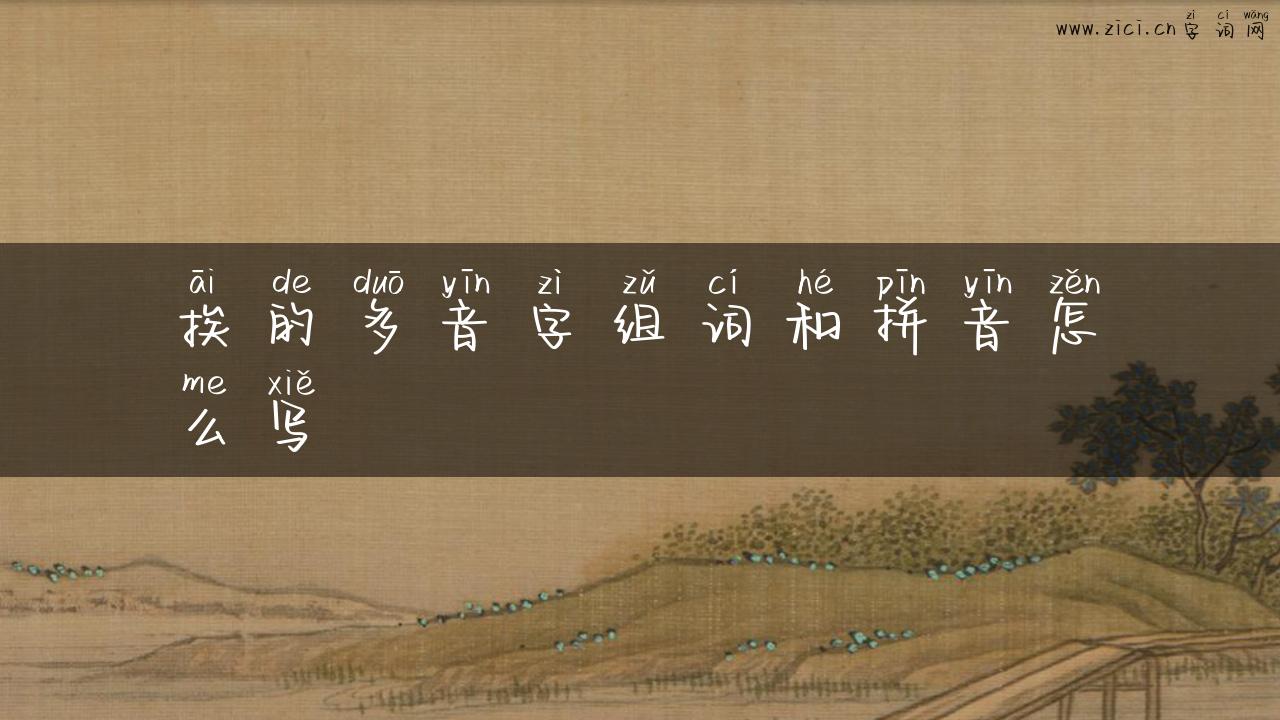 zì cí wǎng
www.zici.cn字词网
āi de duō yīn zì zǔ cí hé pīn yīn zěn
挨的多音字组词和拼音怎
me xiě
么写